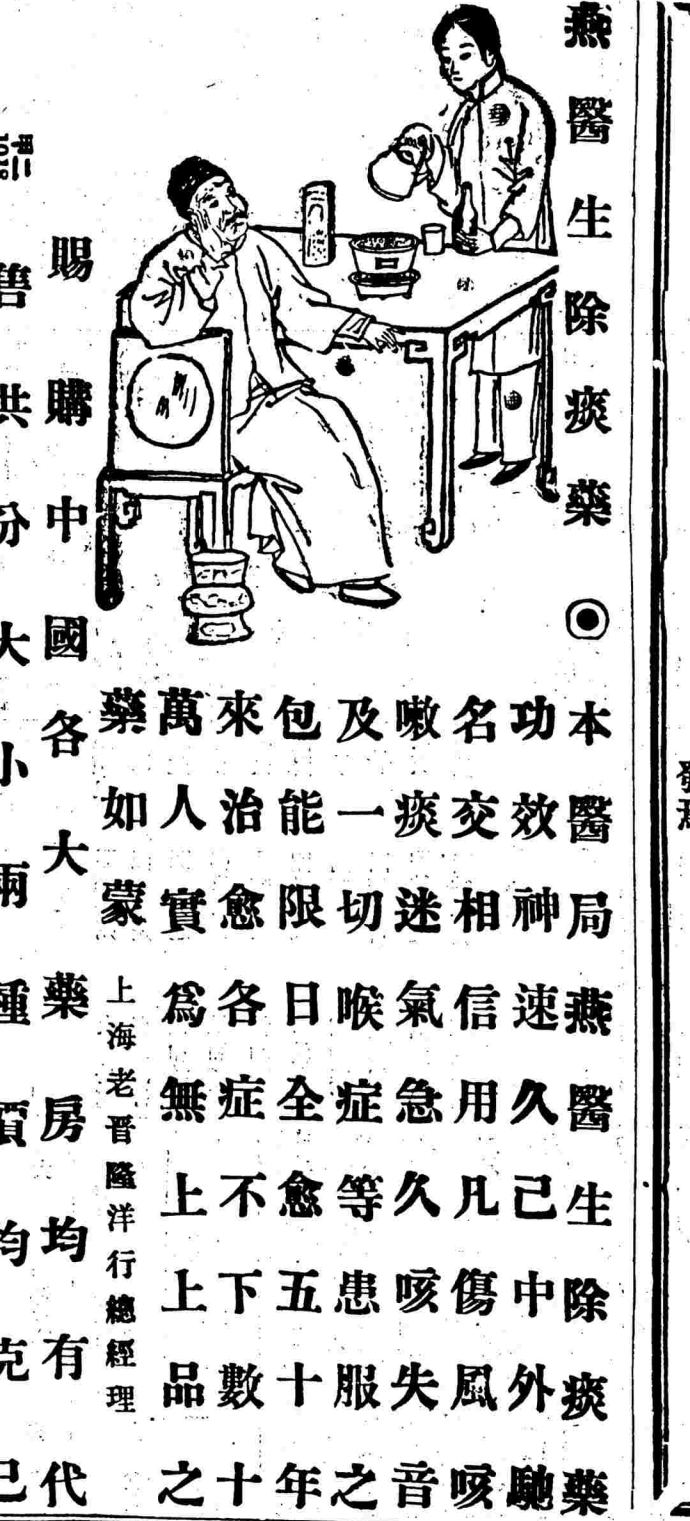 燕醫生除痰藥
本醫局燕醫生除痰藥
功效神速久已中外馳
名交相信用凡傷風咳
嗽痰迷氣急久咳失音
及一切喉症等患服之
包能限日全愈五十年
來治愈各症不下數十
萬人實為無上上品之
藥如蒙
上海老晋隆洋行總經理
賜購中國各大藥房均有代
售分大小兩種價均克己